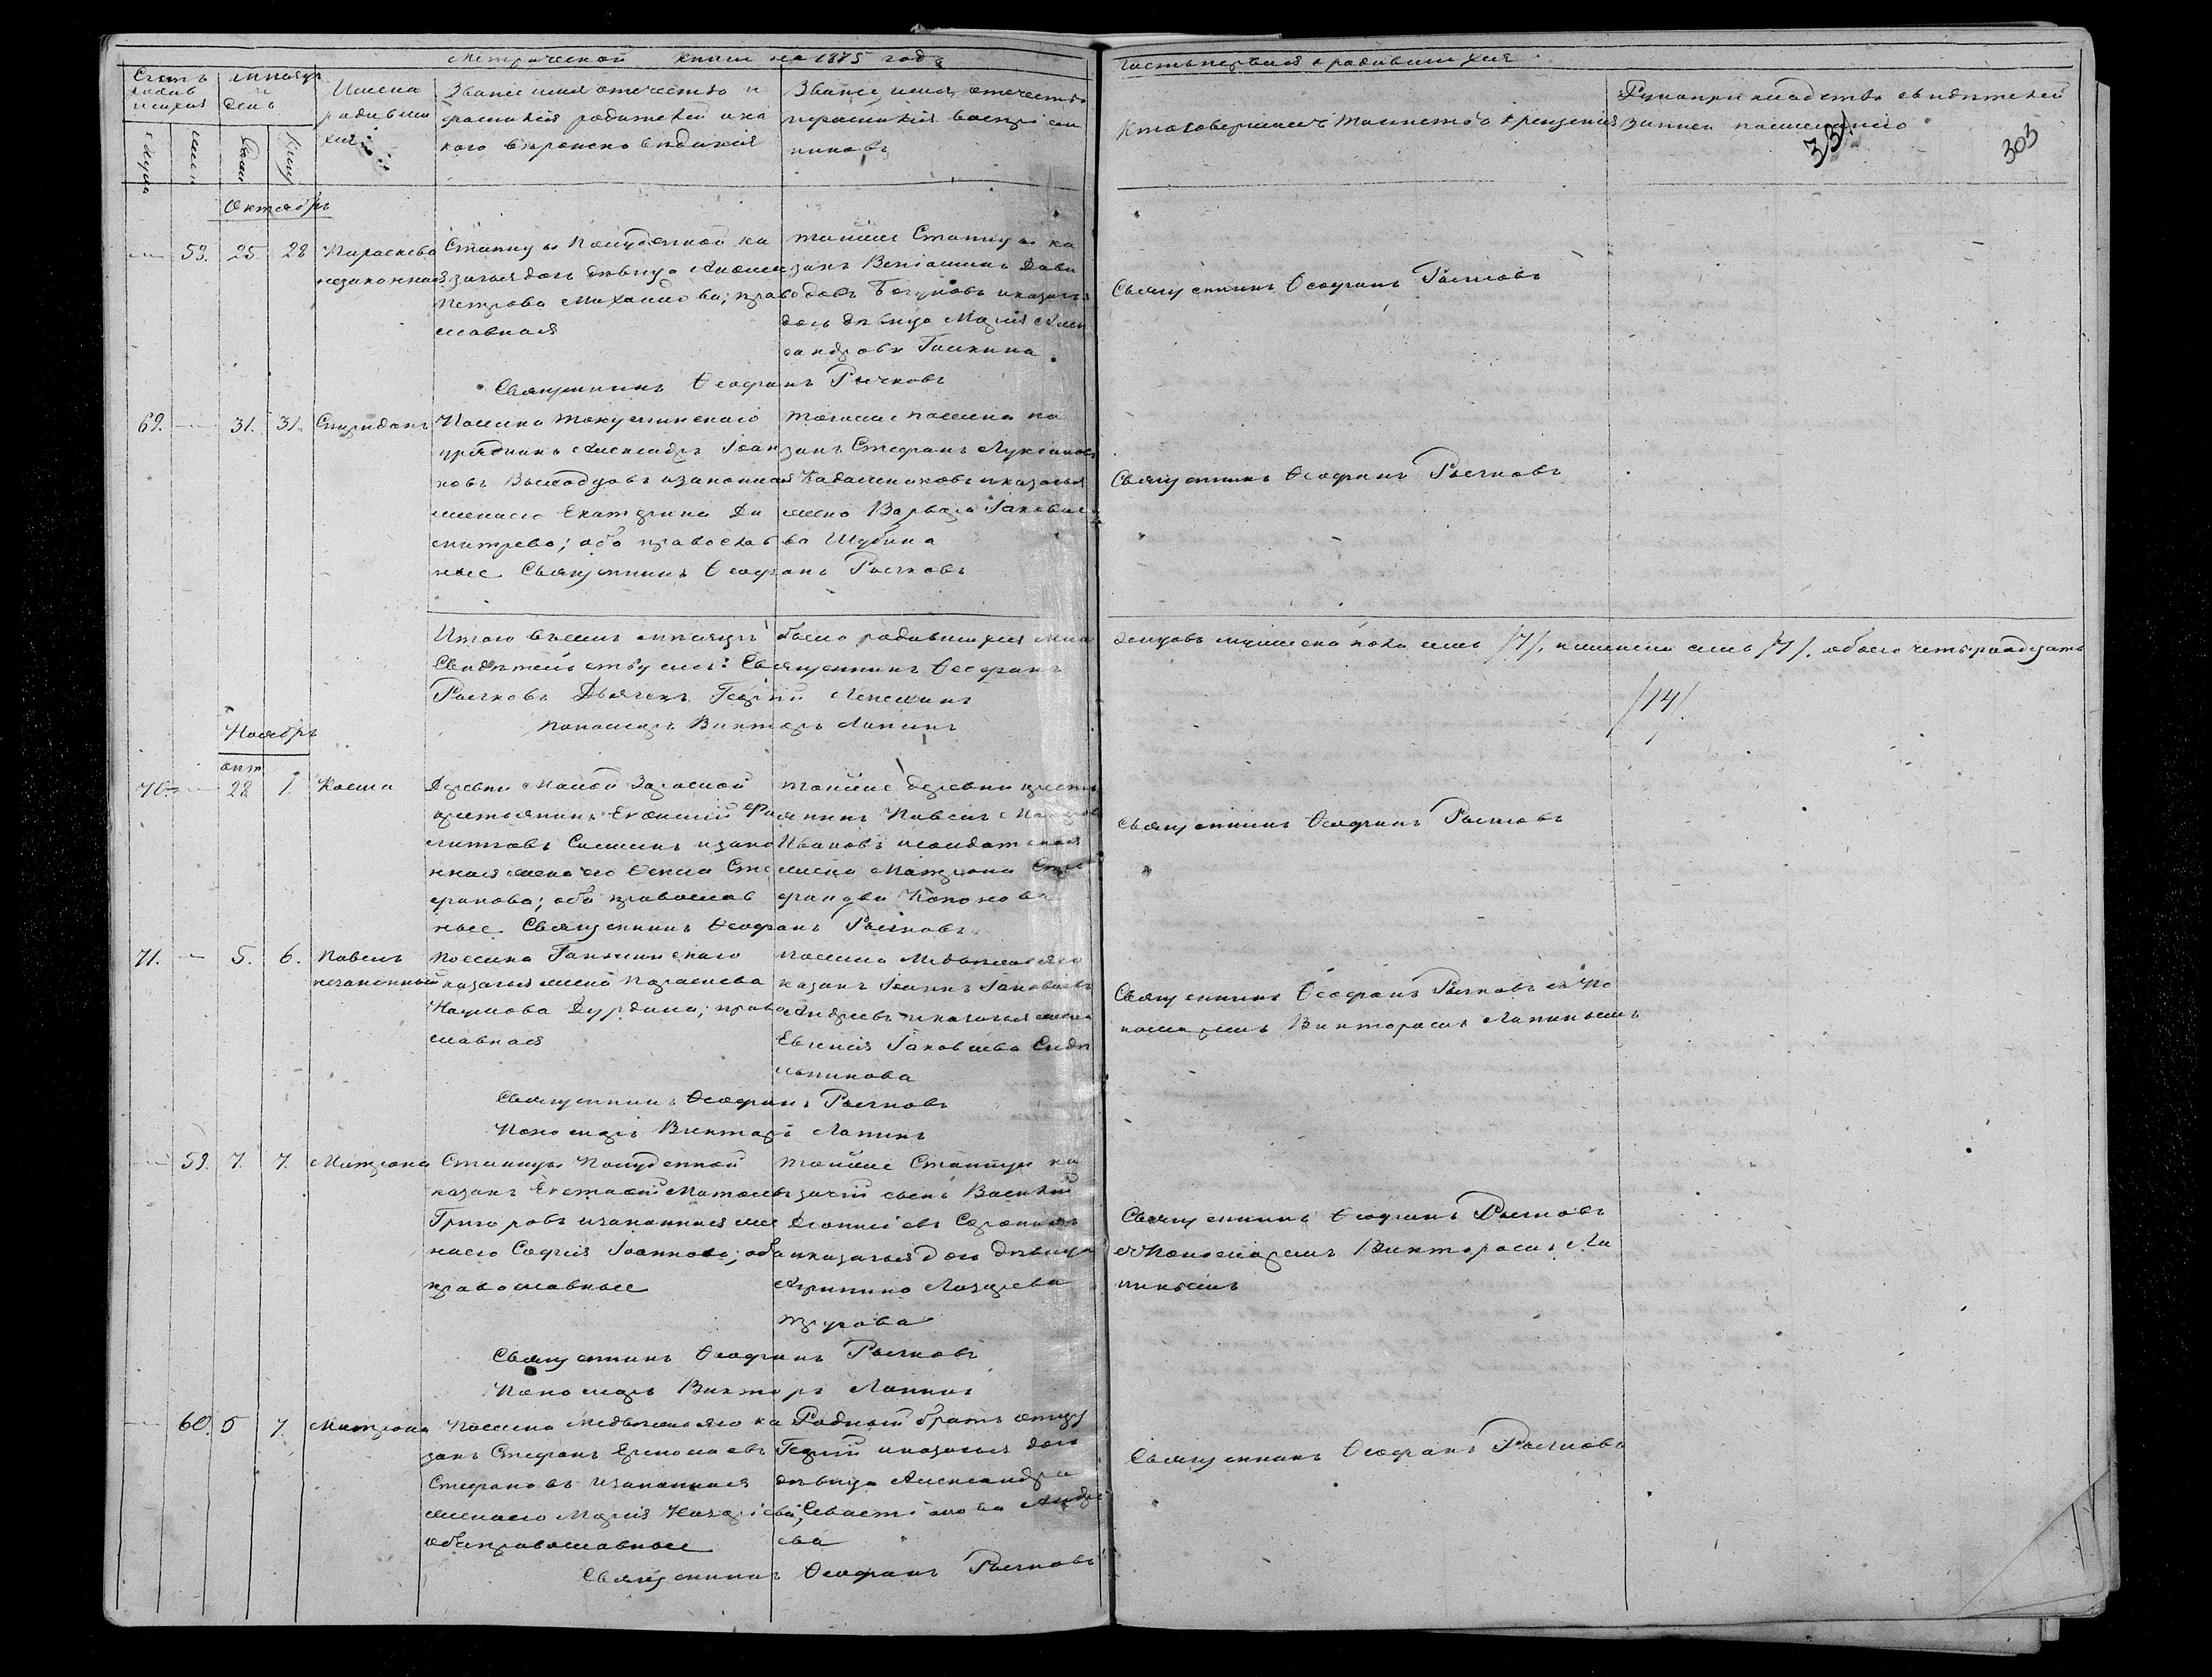 Метрической книги на 1875 годъ
Часть первая о родившихся
Счетъ родившихся
Мѣсяцъ и день
Имена родившихся
Званіе имя отечество и фамилія родителей и какого вѣроисповѣданія
Званіе имя, отечество и фамилія воспріемниковъ
Кто совершалъ таинство крещенія
Рукоприкладство свидѣтелей записи
303
Октябрь
53. 25. 28 Параскева незаконная
Станицы Полуденной ка
зачья дочь дѣвица
Петрова Михайлова; право
славная
тойже Станицы ка
закъ Веніаминъ Дави
довъ и казачья
дочь дѣвица Марія Алек
сандрова Галкина
Священникъ Ѳеофанъ Рычковъ
Священникъ Ѳеофанъ Рычковъ
69. 31. 31. Спиридонъ
Поселка Токушинскаго
урядникъ Александръ Іоан
новъ Выходцовъ и законная
жена его Екатерина Ди
митрева; оба православ
ные Священникъ Ѳеофанъ Рычковъ
тогоже поселка ка
закъ Стефанъ Лукіановъ
Кадошниковъ и казачья
жена Варвара Іаковле
ва Шубина
Священникъ Ѳеофанъ Рычковъ
Итого въ семъ мѣсяцѣ было родившихся мла
денцовъ мужеска пола семь /7/, женска семь /7/. обоего четырнадцать
/14/.
Свидѣтельствуемъ: Священникъ Ѳеофанъ
Рычковъ Дьячекъ Георгій
Пономарь Викторъ Лапинъ
Ноябрь
окт
70. 28 1. Косма
Деревни Малой
крестьянинъ Евѳимій Фи
липповъ и зако
нная жена его Ѳекла Сте
фанова; оба православ
ные Священникъ Ѳеофанъ Рычковъ
тойже деревни кресть
янинъ Павелъ
Ивановъ и солдатская
жена Матрона Сте
фанова Попова
Священникъ Ѳеофанъ Рычковъ
71. 5. 6. Павелъ незаконный
Поселка Ганькинскаго
казачья жена Параскева
Наумова Дурдина; право
славная
поселка
казакъ Іоаннъ Іаковлевъ
Андреевъ и казачья жена
Евгенія Іаковлева
Священникъ Ѳеофанъ Рычковъ
Пономарь Викторъ Лапинъ
Священникъ Ѳеофанъ Рычковъ съ По
номаремъ Викторомъ Лапинымъ
59. 7. 7. Матрона
Станицы Полуденной
казакъ Евстафій
Григоровъ и законная же
на его Софія Іоаннова; оба
православные
тойже Станицы ка
зачій сынъ Василій
и казачья дочь дѣвица
Агрипина Лазарева
Священникъ Ѳеофанъ Рычковъ
Пономарь Викторъ Лапинъ
Священникъ Ѳеофанъ Рычковъ
съ Пономаремъ Викторомъ Ла
пинымъ
60. 5 7. Матрона
Поселка ка
закъ Стефанъ
Стефановъ и законная
жена его Марія
оба православные
Родной братъ отцу
Георгій и казачья дочь
дѣвица Александра
Севастіанова Андре
ева
Священникъ Ѳеофанъ Рычковъ
Священникъ Ѳеофанъ Рычковъ